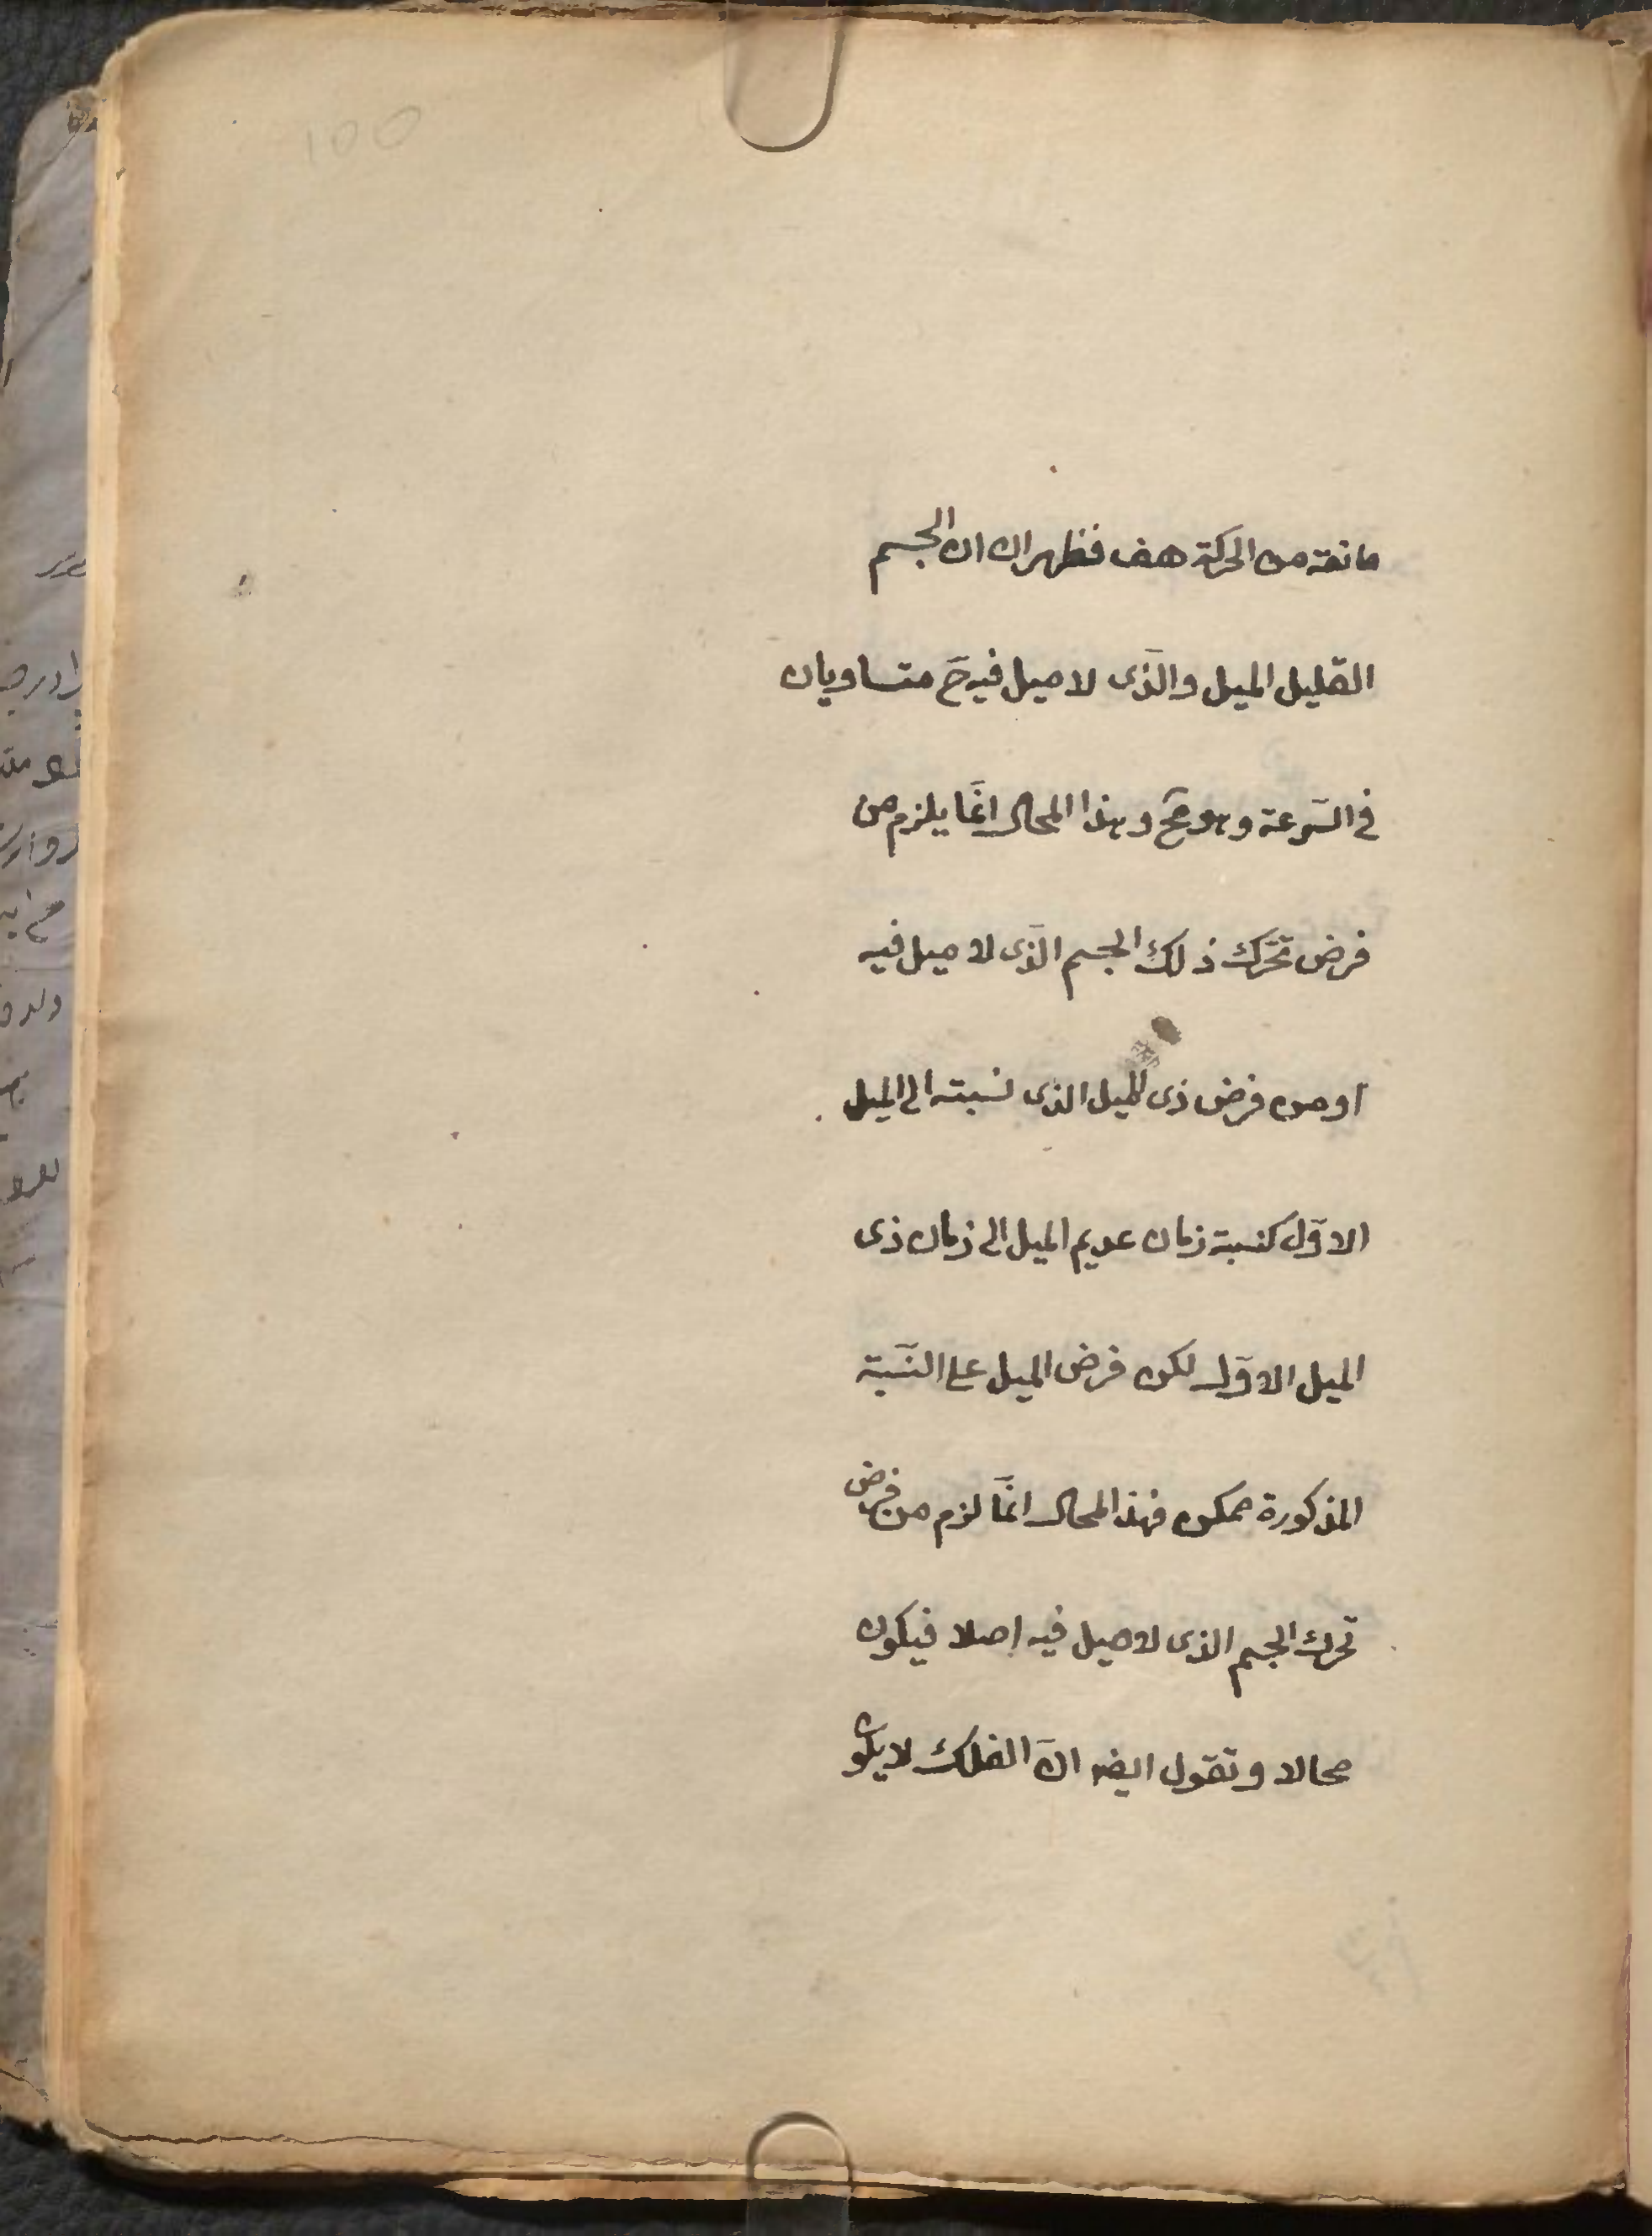 100
مانعة من الحركة هف فظهر ان ان الجسم
القليل الميل والّذى لا ميل فيه حَ متساويان
فى السّرعة وهو مح وهذا المحال انّما يلزم من
فرض تحّرك ذلك الجسم الّذى لا ميل فيه
او من فرض ذى الميل الذى نسبته الى الميل
الاوّل كنسبة زمان عديم الميل الى زمان ذى
الميل الاوّل لكن فرض الميل على النّسبة
المذكورة ممكن فهذا المحال انّما لزم من فرض
تحرك الجسم الذى لا ميل فيه اصلا فيكون
محالا ونقول ايضه انّ الفلك لا يكون